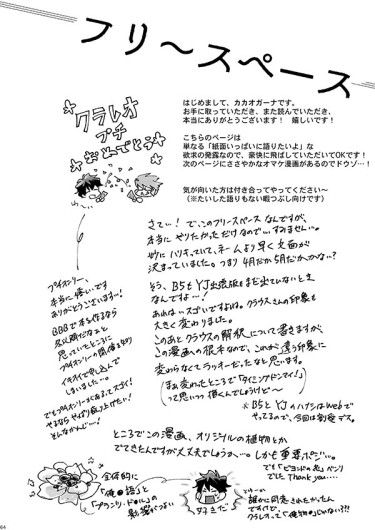 フリ～スペース
クラレオ
プチ
おめでとう
はじめまして、カカオガーナです。
お手に取っていただき、また読んでいただき、
本当にありがとうございます！　嬉しいです！
こちらのページは
単なる「紙面いっぱいに語りたいよ」な
欲求の発露なので、豪快に飛ばしていただいてOKです！
次のページにささやかなオマケ漫画があるのでドウゾ…！
気が向いた方は付き合ってやってください～
（※たいした語りもない暇つぶし向けです）
さてぃ！で、このフリースペースなんですが、
本当にやりたかっただけなので…すみません…。
妙にハリキッていて、ネームより早く文面が
決まっていました。つまり4月だか5月だかっかな…？
そう、B5もYJ出張版もまだ出てないとき
なんですよ…！
あれはスゴイですよね。クラウスさんの印象も
大きく変わりました。
このあとクラウスの解釈について書きますが、
この漫画への根本なので、これが違う印象に
変わらなくてラッキーだったなと思います。
（まぁ変わったところで「タイミングドンマイ！」
って思いつつ描くんでしょうけど～）
※B5とYJのハナシはWebで
やってるので、今回は割愛デス。
プチオンリー、
本当に嬉しいです
ありがとうございます…！
BBBで本を作るなら
思っていたところに
プチオンリーの開催を知り
イキオイで申し込んで
しまいました…。
でもプチオンリーがあるってスゴイ！
やるならやっぱり取り上げたい！
そんなかんじ…！
ところでこの漫画、オリジナルの植物とか
でてきたんですが大丈夫でしょうか…。しかも重要ポジ…。
でも「ビヨンドの花」ベンリ
でした Thank you……
全体的に
「俺◎語」と
の影響がつよい
好きだ
誰かに同意されたかったん
ですけど、
クラレオって「俺物語」じゃない？！？！
64